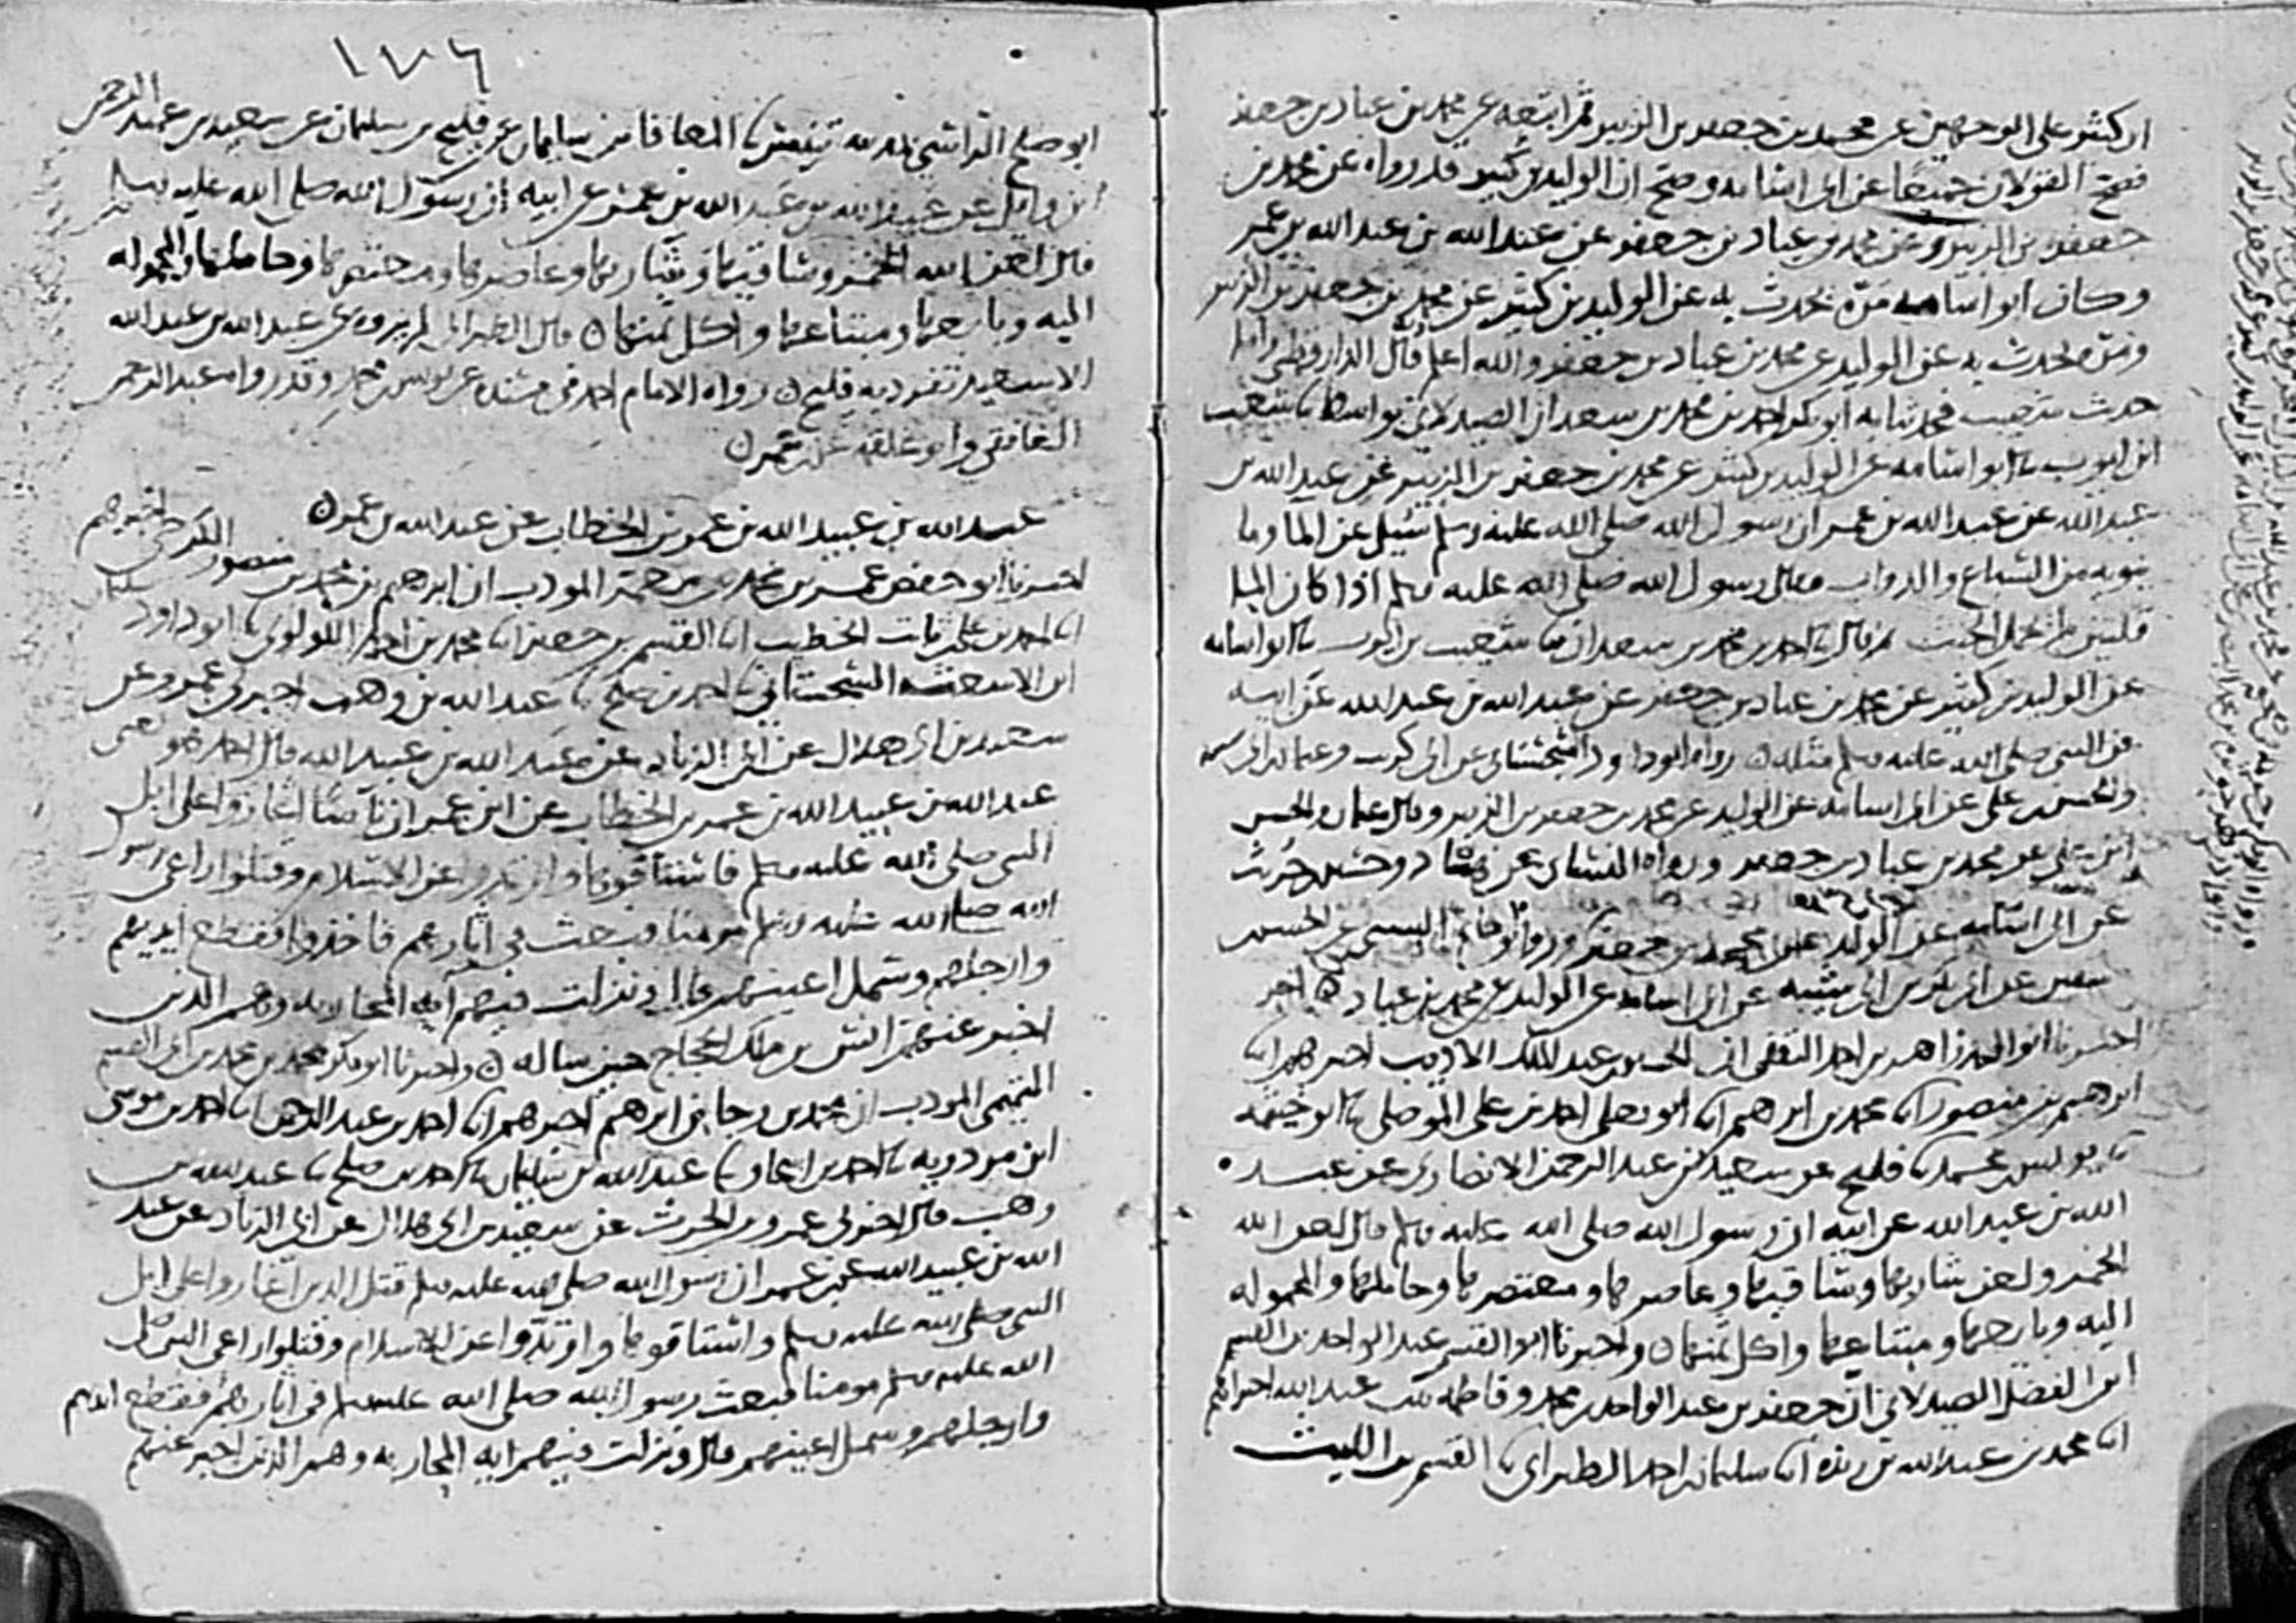 ابن كثير على الوجهين عن محمد بن جعفر بن الزبير ثم اتبعه عن محمد بن عباد بن جعفر
فصح القولان جميعا عن ابى اسامه وصح ان الوليد بن كثير قد رواه عن محمد بن
جعفر بن الزبير وعن محمد بن عباد بن جعفر عن عبد الله بن عبد الله بن عمر
وكان ابو اسامه مرة يحدث به عن الوليد بن كثير عن محمد بن جعفر بن الزبير
ومرة يحدث به عن الوليد عن محمد بن عباد بن جعفر والله اعلم قال الدارقطني واما
حديث شعيب فحدثنا به ابو بكر احمد بن محمد بن سعدان الصيدلانى بواسط نا شعيب
ابن ايوب نا ابو اسامه عن الوليد بن كثير عن محمد بن جعفر بن الزبير عن عبد الله بن
عبد الله عن عبد الله بن عمر ان رسول الله صلى الله عليه وسلم سئل عن الما وما
ينوبه من السباع والدواب فقال رسول الله صلى الله عليه وسلم اذا كان الما
قلتين لم يحمل الخبث قال نا احمد بن محمد بن سعدان نا شعيب بن ايوب نا ابو اسامه
عن الوليد بن كثير عن محمد بن عباد بن جعفر عن عبد الله بن عبد الله عن ابيه
عن النبى صلى الله عليه وسلم مثله رواه ابو داود السجستانى عن ابى كريب وعثمان بن ابى شيبه
والحسن بن على عن ابى اسامه عن الوليد عن محمد بن جعفر بن الزبير وقال عثمان والحسن
ابن على عن محمد بن عباد بن جعفر ورواه النسائى عن هناد وحسين بن حريث
عن ابى اسامه عن الوليد عن محمد بن جعفر
عن ابى بكر بن ابى شيبه عن ابى اسامه عن الوليد عن محمد بن عباد
اخبرنا ابو المجد زاهر بن احمد الثقفى ان الحسين بن عبد الملك الاديب اخبرهم انا
ابرهيم بن منصور انا محمد بن ابرهيم انا ابو يعلى احمد بن على الموصلى نا ابو خيثمه
نا يونس بن محمد نا فليح عن سعيد بن عبد الرحمن الانصارى عن عبد
الله بن عبد الله عن ابيه ان رسول الله صلى الله عليه وسلم قال لعن الله
الخمر ولعن شاربها وساقيها وعاصرها ومعتصرها وحاملها والمحموله
اليه وبايعها ومبتاعها واكل ثمنها واخبرنا ابو القسم عبد الواحد بن القسم
ابن الفضل الصيدلانى ان جعفر بن عبد الواحد بن محمد وفاطمه بنت عبد الله اخبراهم
انا محمد بن عبد الله بن ريذه انا سليمان بن احمد الطبرانى نا القسم بن الليث
١٧٦
ابو صلح الراسبى بمدينه تنيس نا المعافا بن سليمان نا فليح بن سليمان عن سعيد بن عبد الرحمن
ابن وايل عن عبد الله بن عبد الله بن عمر عن ابيه ان رسول الله صلى الله عليه وسلم
قال لعن الله الخمر وساقيها وشاربها وعاصرها ومعتصرها وحاملها والمحموله
اليه وبايعها ومبتاعها واكل ثمنها قال الطبرانى لم يروه عن عبد الله بن عبد الله
الا سعيد تفرد به فليح رواه الامام احمد فى مسنده عن يونس بن محمد وقد رواه عبد الرحمن
الغافقى وابو علقمه عن ابن عمر
عبد الله بن عبيد الله بن عمر بن الخطاب عن عبد الله بن عمر
اخبرنا ابو حفص عمر بن محمد بن معمر المودب ان ابرهيم بن محمد بن منصور الكرخى اخبرهم
انا احمد بن على بن ثابت الخطيب انا القسم بن جعفر انا محمد بن احمد اللولوى نا ابو داود سليمان
ابن الاشعث السجستانى نا احمد بن صلح نا عبد الله بن وهب اخبرنى عمرو عن
سعيد بن ابى هلال عن ابى الزناد عن عبد الله بن عبيد الله قال احمد هو يعنى
عبد الله بن عبيد الله بن عمر بن الخطاب عن ابن عمر ان ناسا اغاروا على ابل
النبى صلى الله عليه وسلم فاستاقوها وارتدوا عن الاسلام وقتلوا راعى رسول
الله صلى الله عليه وسلم مومنا فبعث فى اثارهم فاخذوا فقطع ايديهم
وارجلهم وسمل اعينهم قال ونزلت فيهم ايه المحاربه وهم الذين
اخبر عنهم انس بن ملك الحجاج حين ساله واخبرنا ابو بكر محمد بن محمد بن ابى القسم
التميمى المودب ان محمد بن رجا بن ابرهيم اخبرهم انا احمد بن عبد الرحمن انا احمد بن موسى
ابن مردويه نا احمد بن اسحاق نا عبد الله بن سليمان نا احمد بن صلح نا عبد الله بن
وهب قال اخبرنى عمرو بن الحرث عن سعيد بن ابى هلال عن ابى الزناد عن عبد
الله بن عبيد الله عن ابن عمر ان رسول الله صلى الله عليه وسلم قتل الذين اغاروا على ابل
النبى صلى الله عليه وسلم واستاقوها وارتدوا عن الاسلام وقتلوا راعى النبى صلى
الله عليه وسلم مومنا فبعث رسول الله صلى الله عليه وسلم فى اثارهم فقطع ايديهم
وارجلهم وسمل اعينهم قال ونزلت فيهم ايه المحاربه وهم الذين اخبر عنهم